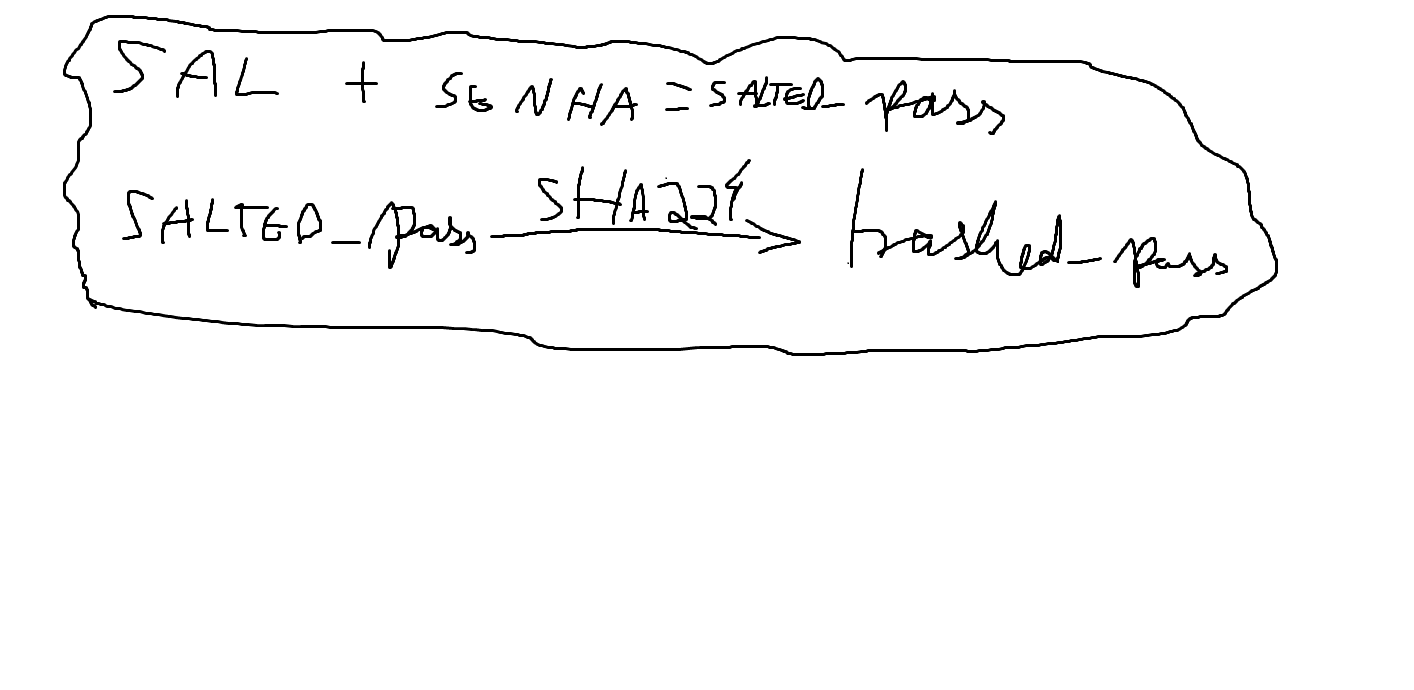 SAL + SENHA = SALTED_pass
SALTED_pass SHA224 hashed_pass